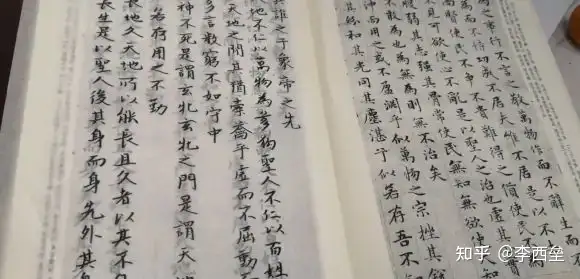 為之事行不言之教萬物作而不辭生而
為而不恃功成不居夫唯不居是以不
賢使民不爭不貴難得之貨使民不
見可欲使心不亂是以聖人之治也虛其
腹弱其志強其骨常使民無知無欲使
不敢為也為無為則無不治矣
沖而用之或不盈淵乎似萬物之宗挫其銳
其紛和其光同其塵湛乎似若存吾不
誰之子象帝之先
地不仁以萬物為芻狗聖人不仁以百姓
天地之間其猶橐籥乎虛而不屈動而
多言數窮不如守中
神不死是謂玄牝玄牝之門是謂天地
若存用之不勤
長地久天地所以能長且久者以其不
長生是以聖人後其身而身先外其身
知乎 @李西垒